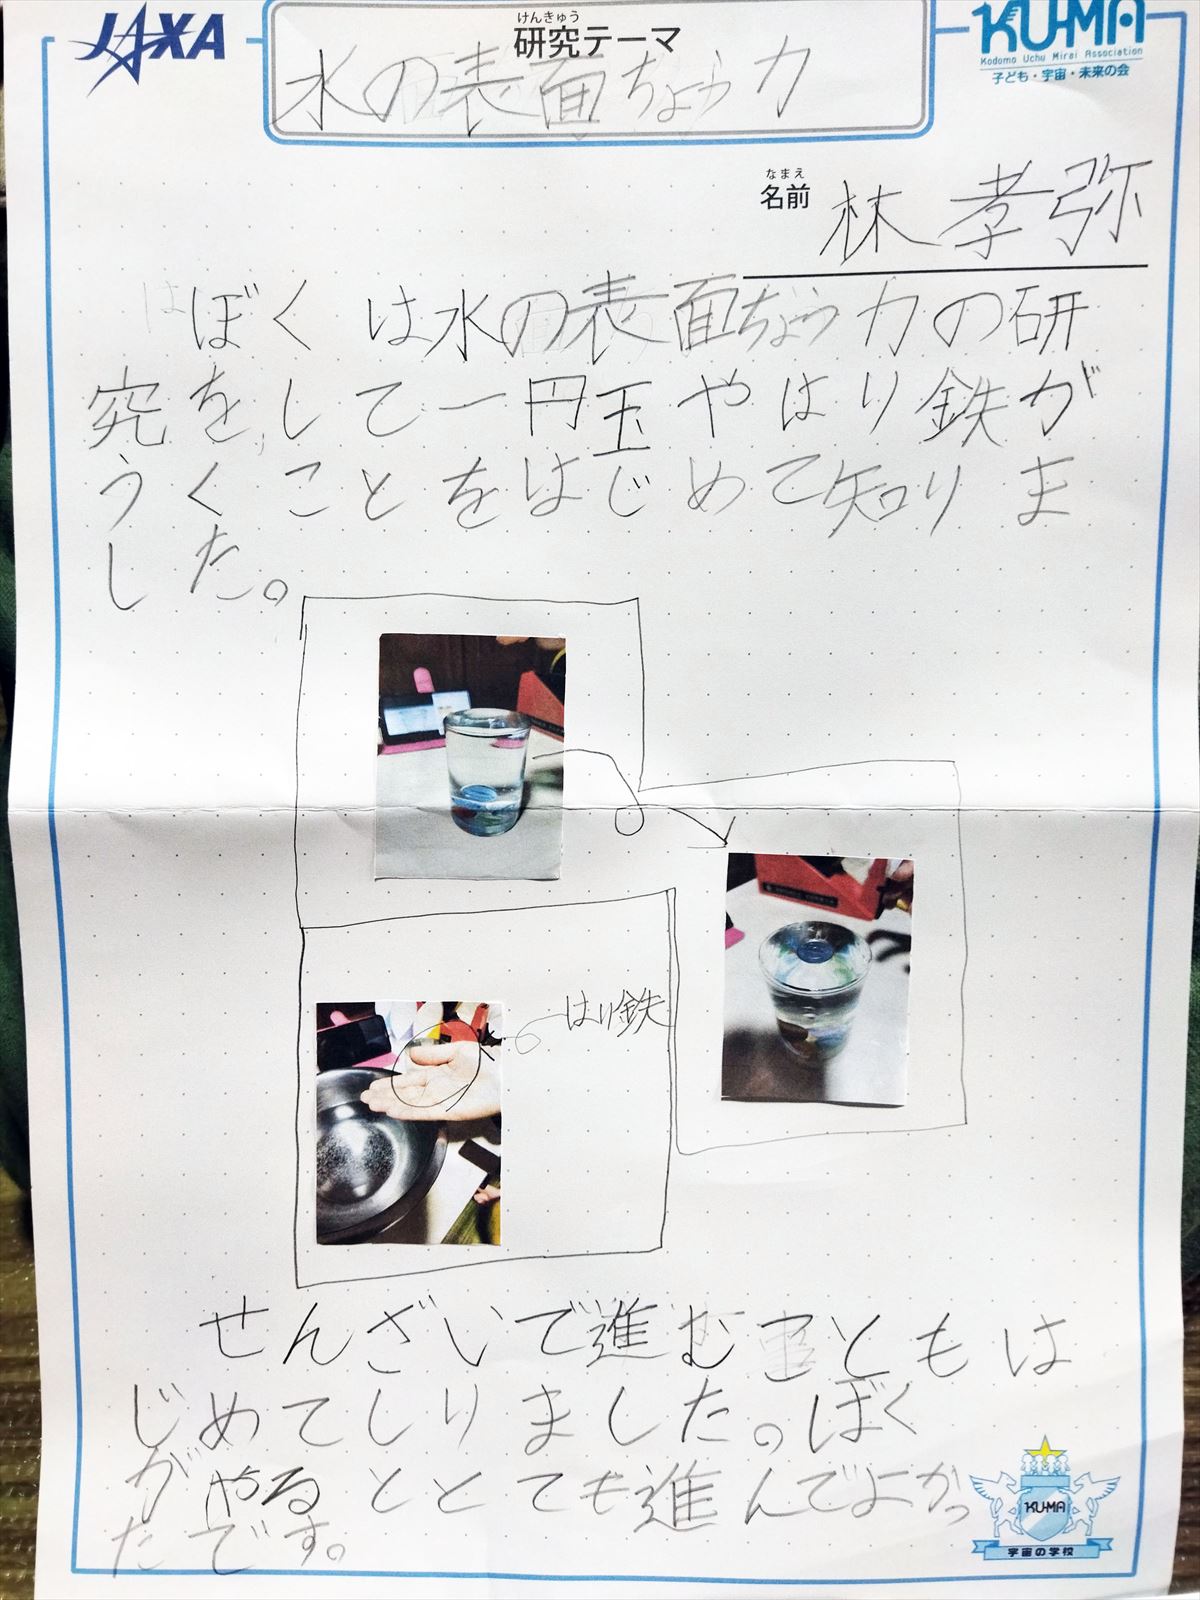 JAXA
けんきゅう
研究テーマ
KU-MA
Kodomo Uchu Mirai Association
子ども・宇宙・未来の会
水の表面ちょう力
なまえ
名前
林孝弥
ぼくは水の表面ぢょう力の研
究をして一円玉やはり鉄が
うくことをはじめて知りま
した。
はり鉄
せんざいで進むこともは
じめてしりました。ぼく
がやるととても進んでよかっ
たです。
KU-MA
宇宙の学校